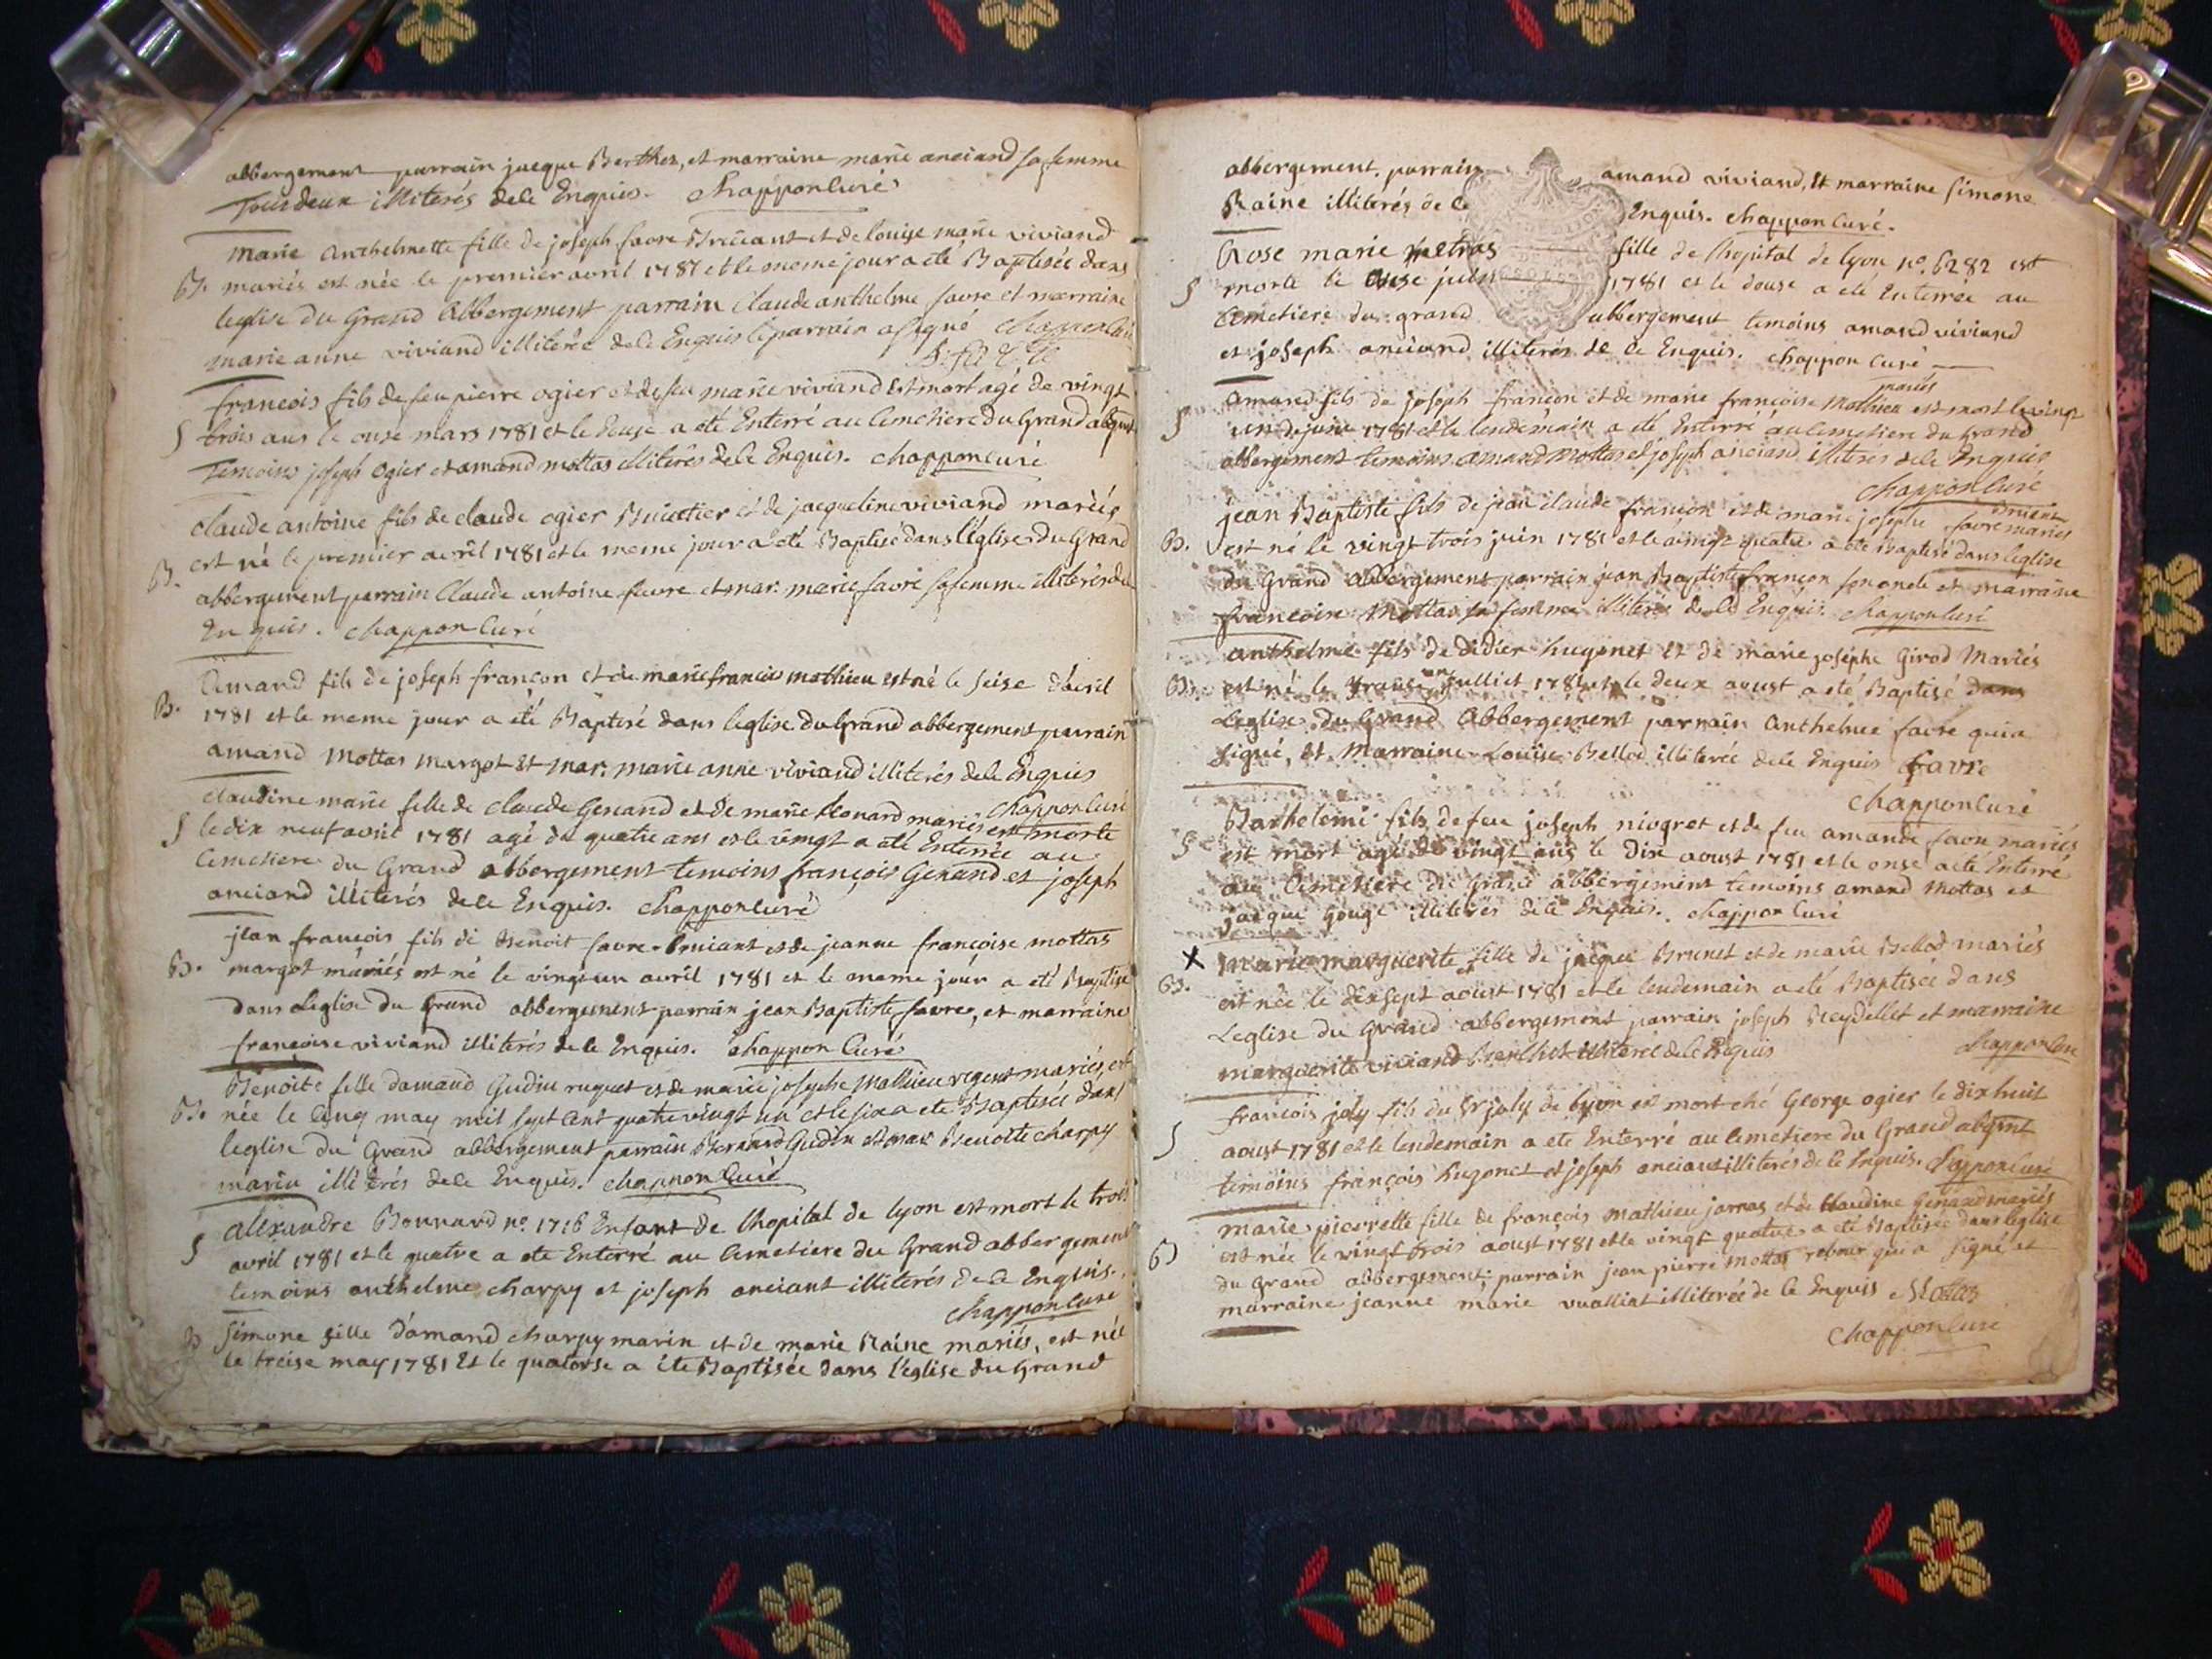 abbergement parrain jacque Berthet, et marraine marie anciand sa femme
Tous deux illiterés de ce Enquis. Chappon Curé
marie anthelmette fille de joseph favre Bruiant et de louise marie viviand
B. mariés est née le premier avril 1781 et le meme jour a eté Baptisée dans
leglise du Grand Abbergement parrain Claude anthelme favre et marraine
marie anne viviand illiterée de ce Enquis le parrain a signé Chappon Curé
francois fils de feu pierre ogier et de feu marie viviand est mort agé de vingt
S trois ans le onse mars 1781 et le douse a eté Enterré au Cemetiere du Grand abgmt
Temoins joseph ogier et amand mottas illiterés de ce Enquis. Chappon Curé
claude antoine fils de claude ogier et de jacqueline viviand mariés
est né le premier avril 1781 et le meme jour a eté Baptisé dans l'Eglise du Grand
B. abbergement parrain Claude antoine favre et mar. marie favre sa femme illiterés de ce
Enquis. Chappon Curé
Amand fils de joseph françon et de marie francoise mathieu est né le seise d'avril
B. 1781 et le meme jour a eté Baptisé dans leglise du Grand abbergement parrain
amand Mottas margot Et mar. marie anne viviand illiterés de ce Enquis
Chappon Curé
claudine marie fille de claude Genand et de marie Monard mariés est morte
S le dix neuf avril 1781 agé de quatre ans et le vingt a eté Enterrée au
Cemetiere du Grand abbergement temoins françois Genand et joseph
anciand illiterés de ce Enquis. Chappon curé
jean françois fils de Benoit favre-bruiant et de jeanne françoise mottas
B. margot mariés est né le vingt un avril 1781 et le meme jour a eté Baptisé
dans leglise du Grand abbergement parrain jean Baptiste favre, et marraine
françoise viviand illiterés de ce Enquis. Chappon Curé
Benoite fille d'amand Gudin ruquet et de marie josephe Mathieu regent mariés, est
B. née le Cinq may mil sept Cent quatre vingt un et le six a ete Baptisée dans
leglise du Grand abbergement parrain Bernard Gudin et mar Benoite Charpy
marin illiterés de ce Enquis. Chappon Curé
alexandre Bonnard no. 1716 Enfant de lhopital de lyon est mort le trois
S avril 1781 et le quatre a ete Enterré au Cemetiere du Grand abbergement
temoins anthelme charpy et joseph anciant illiterés de ce Enquis.
Chappon Curé
B Simone fille d'amand charpy marin et de marie Raine mariés, est née
le treise may 1781 Et le quatorse a été Baptisée dans l'église du Grand
abbergement. parrain amand viviand, Et marraine Simone
Raine illiterés de ce Enquis. Chappon Curé.
Rose marie metras fille de lhopital de lyon no. 6282 est
S morte le onse juin 1781 et le douse a eté Enterrée au
Cemetiere du grand abbergement temoins amand viviand
et joseph anciand illiterés de ce Enquis. Chappon Curé
mariés
amand fils de joseph françon et de marie françoise Mathieu est mort le vingt
S un de juin 1781 et le lendemain a eté Enterré au Cemetiere du Grand
abbergement temoins amand Mottas et joseph anciand illiterés de ce Enquis
Chappon Curé
bruiant
jean Baptiste fils de jean claude françon et de marie josephe favre mariés
B. est né le vingt trois juin 1781 et le vingt quatre a eté Baptisé dans leglise
du Grand abbergement parrain jean Baptiste françon son oncle et marraine
francoise Mottas sa femme illiterés de ce Enquis. Chappon Curé
anthelme fils de didier hugonet Et de marie josephe Girod Mariés
B. est né le trente un juillet 1781 et le deux aoust a eté Baptisé dans
Leglise du Grand Abbergement parrain Anthelme favre qui a
Signé, Et Marraine Louise Bellod illiterée de ce Enquis favre
Chappon Curé
Barthelemi fils de feu joseph niogret et de feu amande favre mariés
S est mort agé de vingt ans le dix aoust 1781 et le onse a eté Enterré
au Cemetiere du Grand abbergement temoins amand Mottas et
jacque Gouge illiterés de ce Enquis. Chappon Curé
x Marie marguerite fille de jacque Brunet et de marie Bellod mariés
B. est née le dix sept aoust 1781 et le lendemain a eté Baptisée dans
Leglise du Grand abbergement parrain joseph Reydellet et marraine
marguerite viviand illiterés de ce Enquis Chappon Curé
françois joly fils du Sr joly de lyon est mort ché George ogier le dix huit
S aoust 1781 et le lendemain a ete Enterré au Cemetiere du Grand abgmt
temoins françois hugonet et joseph anciant illiterés de ce Enquis. Chappon Curé
marie pierrette fille de françois Mathieu jarras et de Claudine Genand mariés
B est née le vingt trois aoust 1781 et le vingt quatre a eté Baptisée dans leglise
du Grand abbergement; parrain jean pierre Mottas rebour qui a signé et
marraine jeanne marie vualliat illiterée de ce Enquis Mottas
Chappon Curé